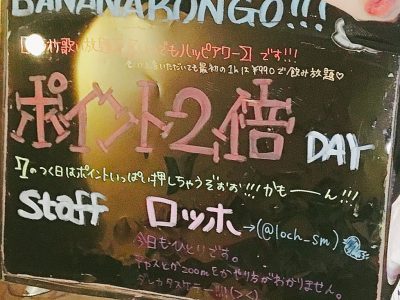 BANANAKONGO!!!
歌い放 でもハッピアワー〕です!!!
いただいても最初の1hは¥990で飲み放題♡
ポイント2倍 DAY
7のつく日はポイントいっぱい押しちゃうぞぉぉ!!!かもーん!!!
Staff ロッホ→(@loch_sm)
今日もひとりです。
キャスとかzoomとかやり方がわかりません。
ダレカタスケテー!!!(><)